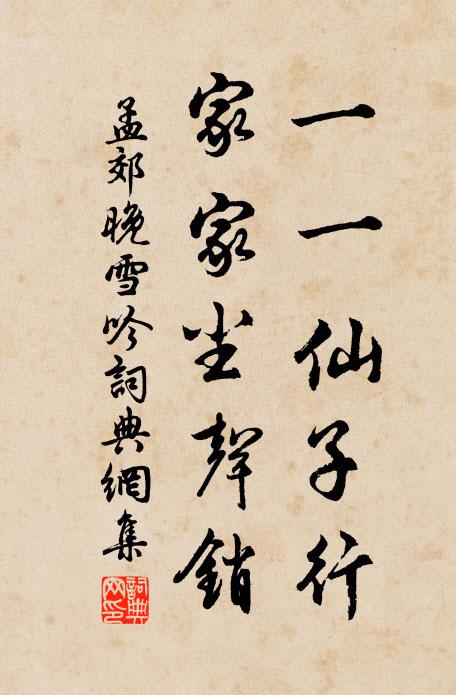 一一仙子行
家家尘聲銷
孟郊晚雪吟詞典網集
詞典网印